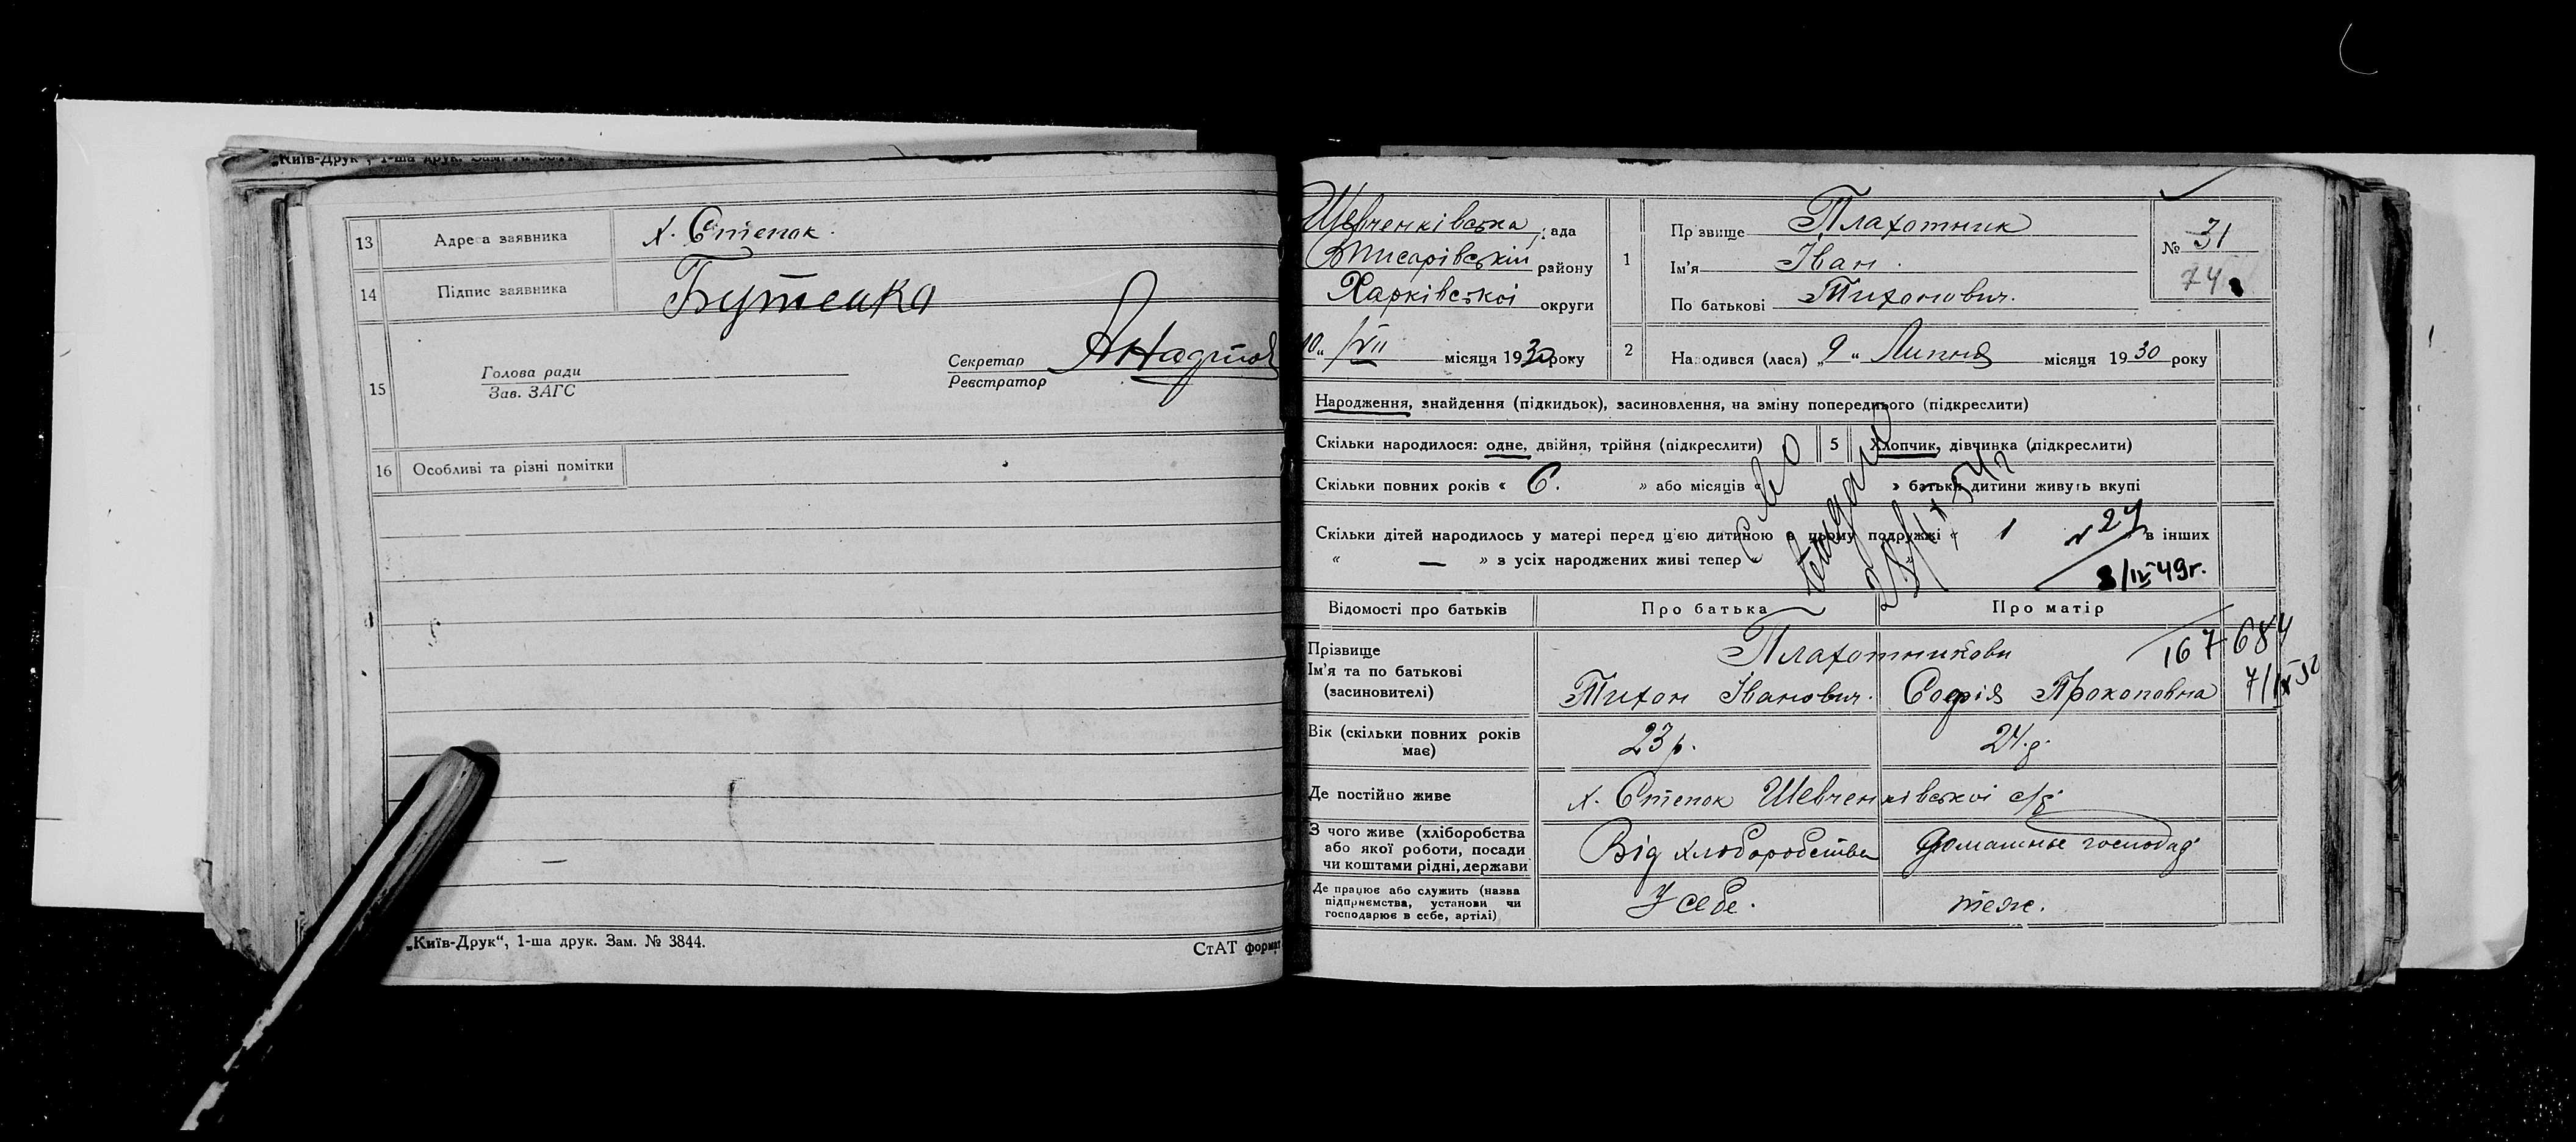 „Київ-Друк", 1-ша друк. Зам. №
13 Адреса заявника х. Степок.
14 Підпис заявника Бутенко
15 Голова ради
Зав. ЗАГС
Секретар
Реєстратор
16 Особливі та різні помітки
„Київ-Друк“, 1-ша друк. Зам. № 3844.
СтАТ формат
Шевченківська рада
Вписарівський району
Харківської округи
10„ /VII місяця 1930 року
1 Прізвище Плахотник
Ім'я Іван.
По батькові Тихонович.
№ 31
74
2 Народився (лася) „9„ Липня місяця 1930 року
Народження, знайдення (підкидьок), засиновлення, на зміну попереднього (підкреслити)
Скільки народилося: одне, двійня, трійня (підкреслити) 5 Хлопчик, дівчинка (підкреслити)
Скільки повних років « 6. » або місяців « » батьки дитини живуть вкупі
Скільки дітей народилось у матері перед цією дитиною в цьому подружжі « 1 » в інших
« — » з усіх народжених живі тепер «
27
8/IV 49г.
Відомості про батьків Про батька Про матір
Прізвище
Ім'я та по батькові
(засиновителі)
Плахотникови
Тихон Іванович. Софія Прокоповна
167 684
7/IX 52
Вік (скільки повних років має) 23 р. 24.р.
Де постійно живе х. Степок Шевченківської с/р.
З чого живе (хліборобства або якої роботи, посади чи коштами рідні, держави Від хліборобства домашнє господар
Де працює або служить (назва підприємства, установи чи господарює в себе, артілі) У себе. теж.